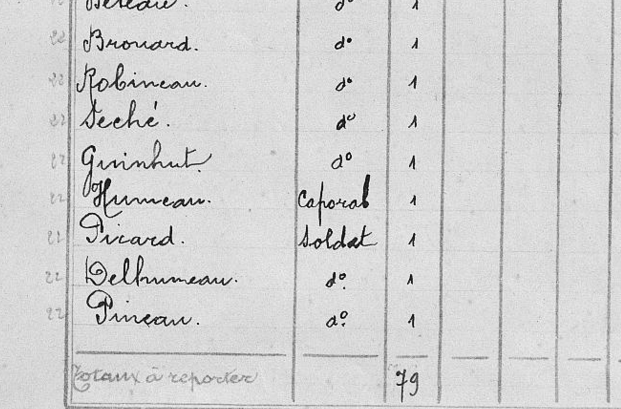 dº 1
22 Brouard. dº 1
22 Robineau. dº 1
22 Seché. dº 1
22 Guinhut dº 1
22 Humeau. Caporal 1
21 Picard. Soldat 1
22 Delhumeau. dº. 1
22 Pineau. dº. 1
Totaux à reporter 79